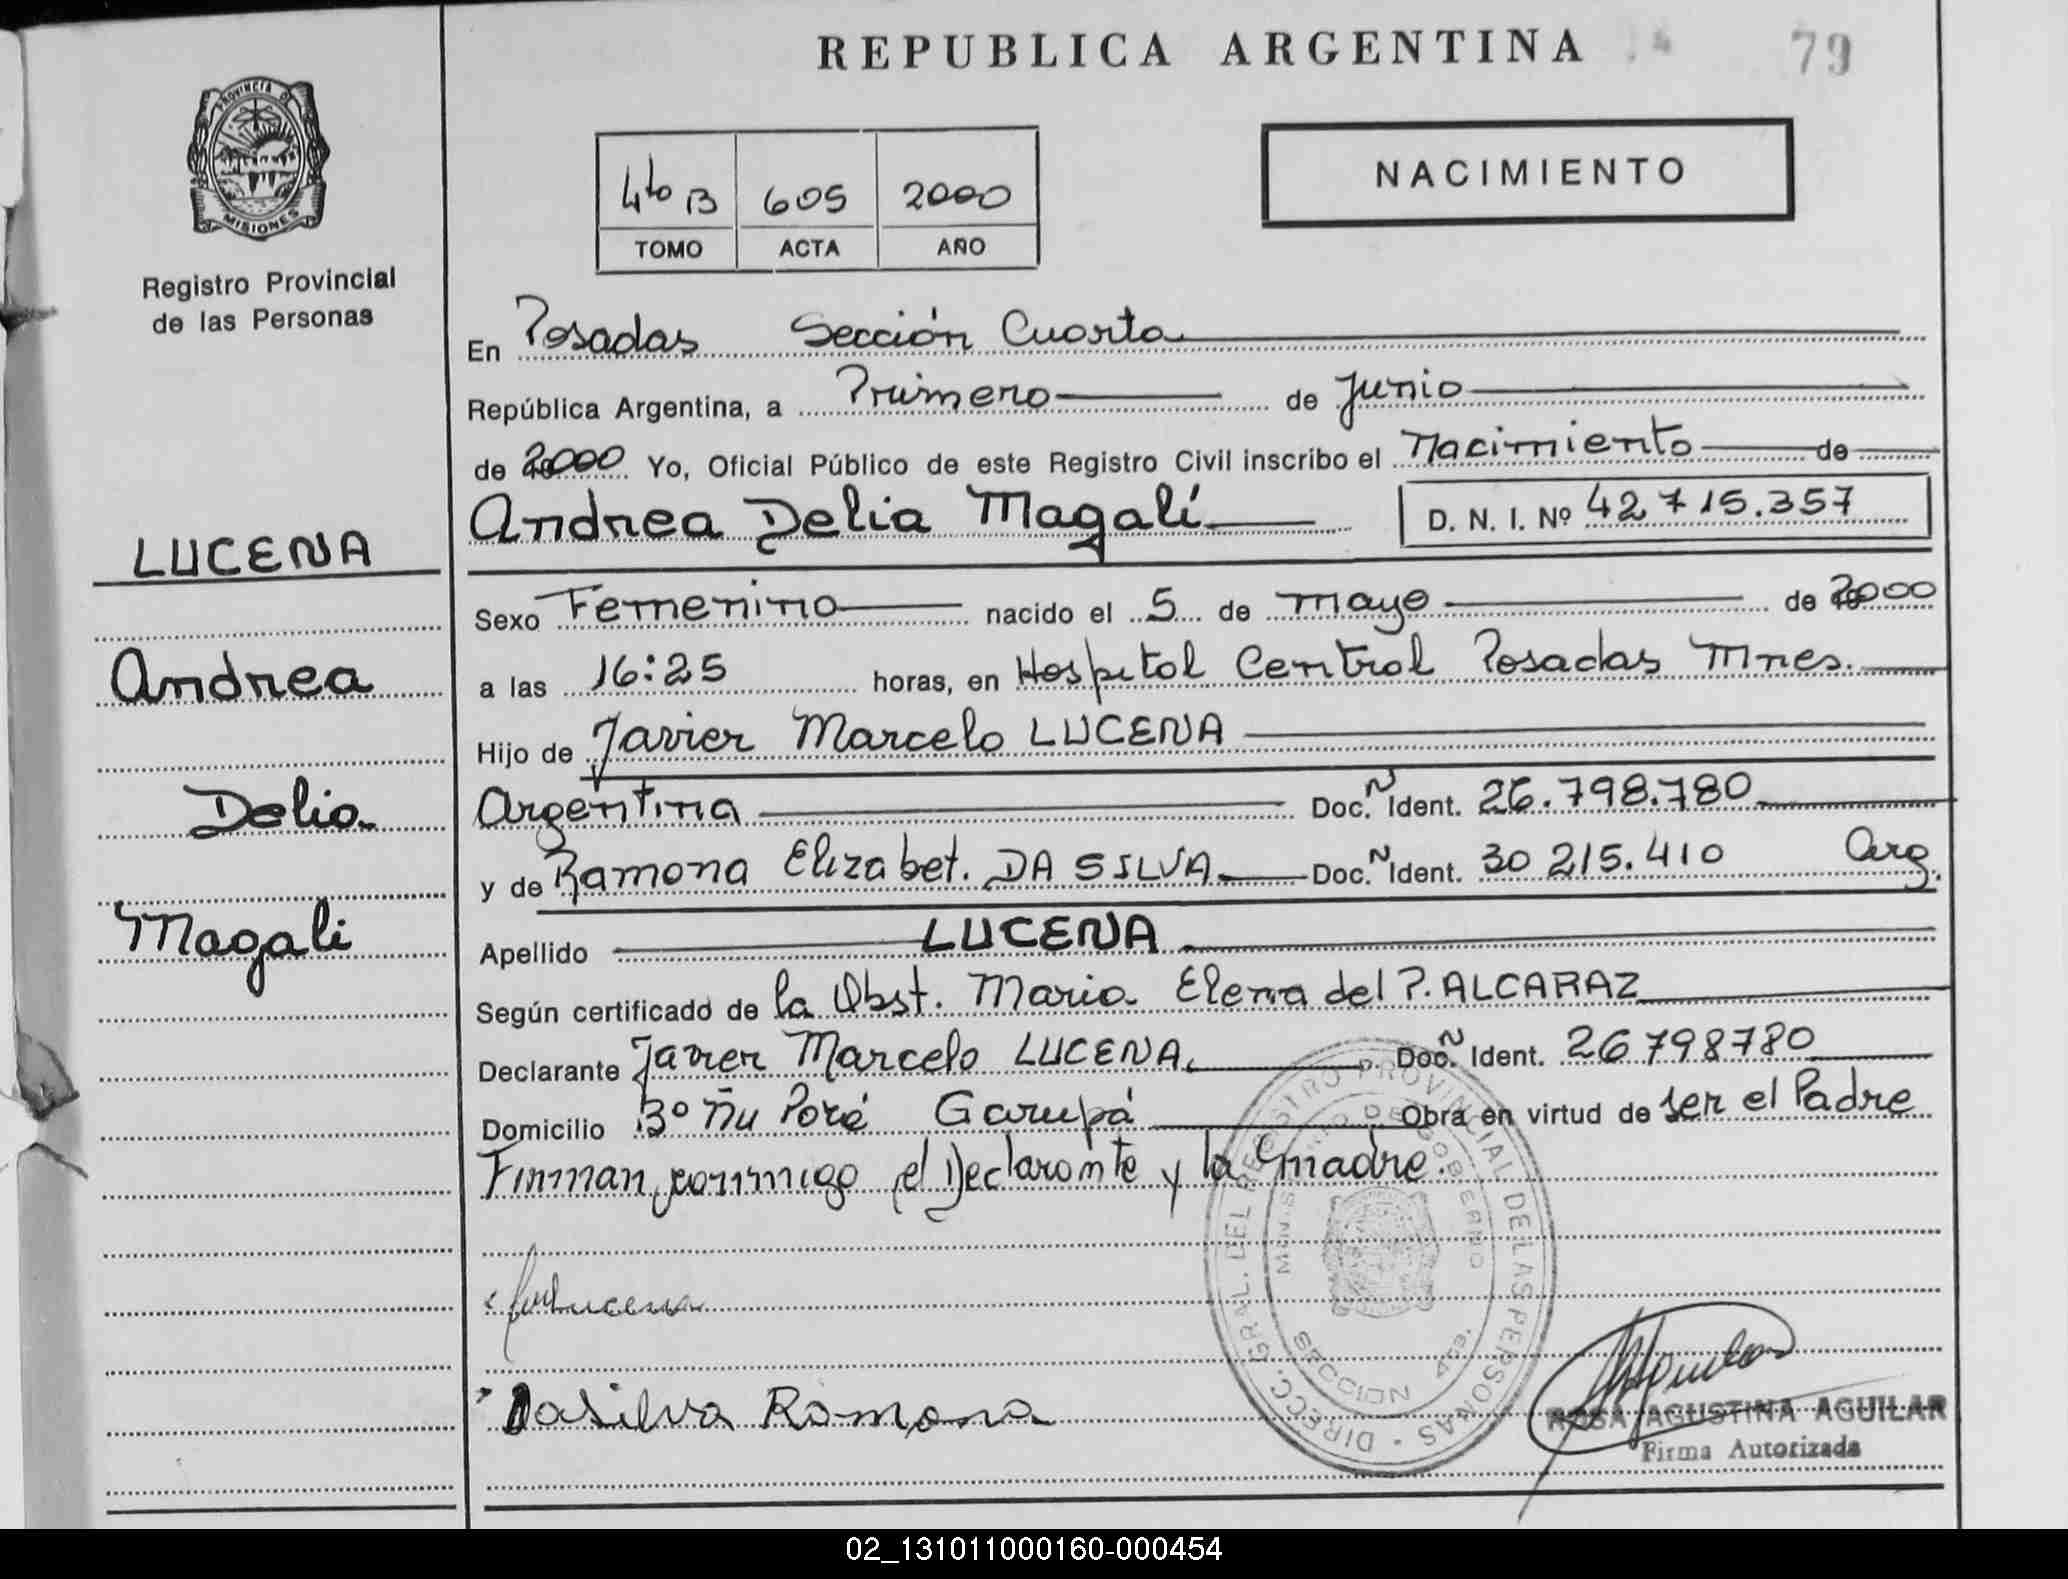 REPUBLICA ARGENTINA
79
PROVINCIA DE
MISIONES
Registro Provincial
de las Personas
4to B 605 2000
TOMO ACTA AÑO
NACIMIENTO
En Posadas Sección Cuarta
República Argentina, a Primero de Junio
de 2000 Yo, Oficial Público de este Registro Civil inscribo el Nacimiento de
Andrea Delia Magalí D. N. I. Nº 42 715.357
LUCENA
Andrea
Delia
Magali
Sexo Femenino nacido el 5 de mayo de 2000
a las 16:25 horas, en Hospital Central Posadas Mnes.
Hijo de Javier Marcelo LUCENA
Argentina Doc. Ñ Ident. 26.798.780
y de Ramona Elizabet. DA SILVA Doc. Ñ Ident. 30 215.410 Arg.
Apellido LUCENA
Según certificado de la Obst. Maria Elena del P. ALCARAZ
Declarante Javier Marcelo LUCENA. Doc. Ñ Ident. 26798780
Domicilio Bº Ñu Poré Garupá Obra en virtud de ser el Padre
Firman conmigo el Declarante y la madre.
DIRECC. GRAL. DEL REGISTRO PROVINCIAL DE LAS PERSONAS
MINISTERIO DE GOBIERNO
SECCION 4ta.
Dasilva Ramona
ROSA AGUSTINA AGUILAR
Firma Autorizada
02_131011000160-000454